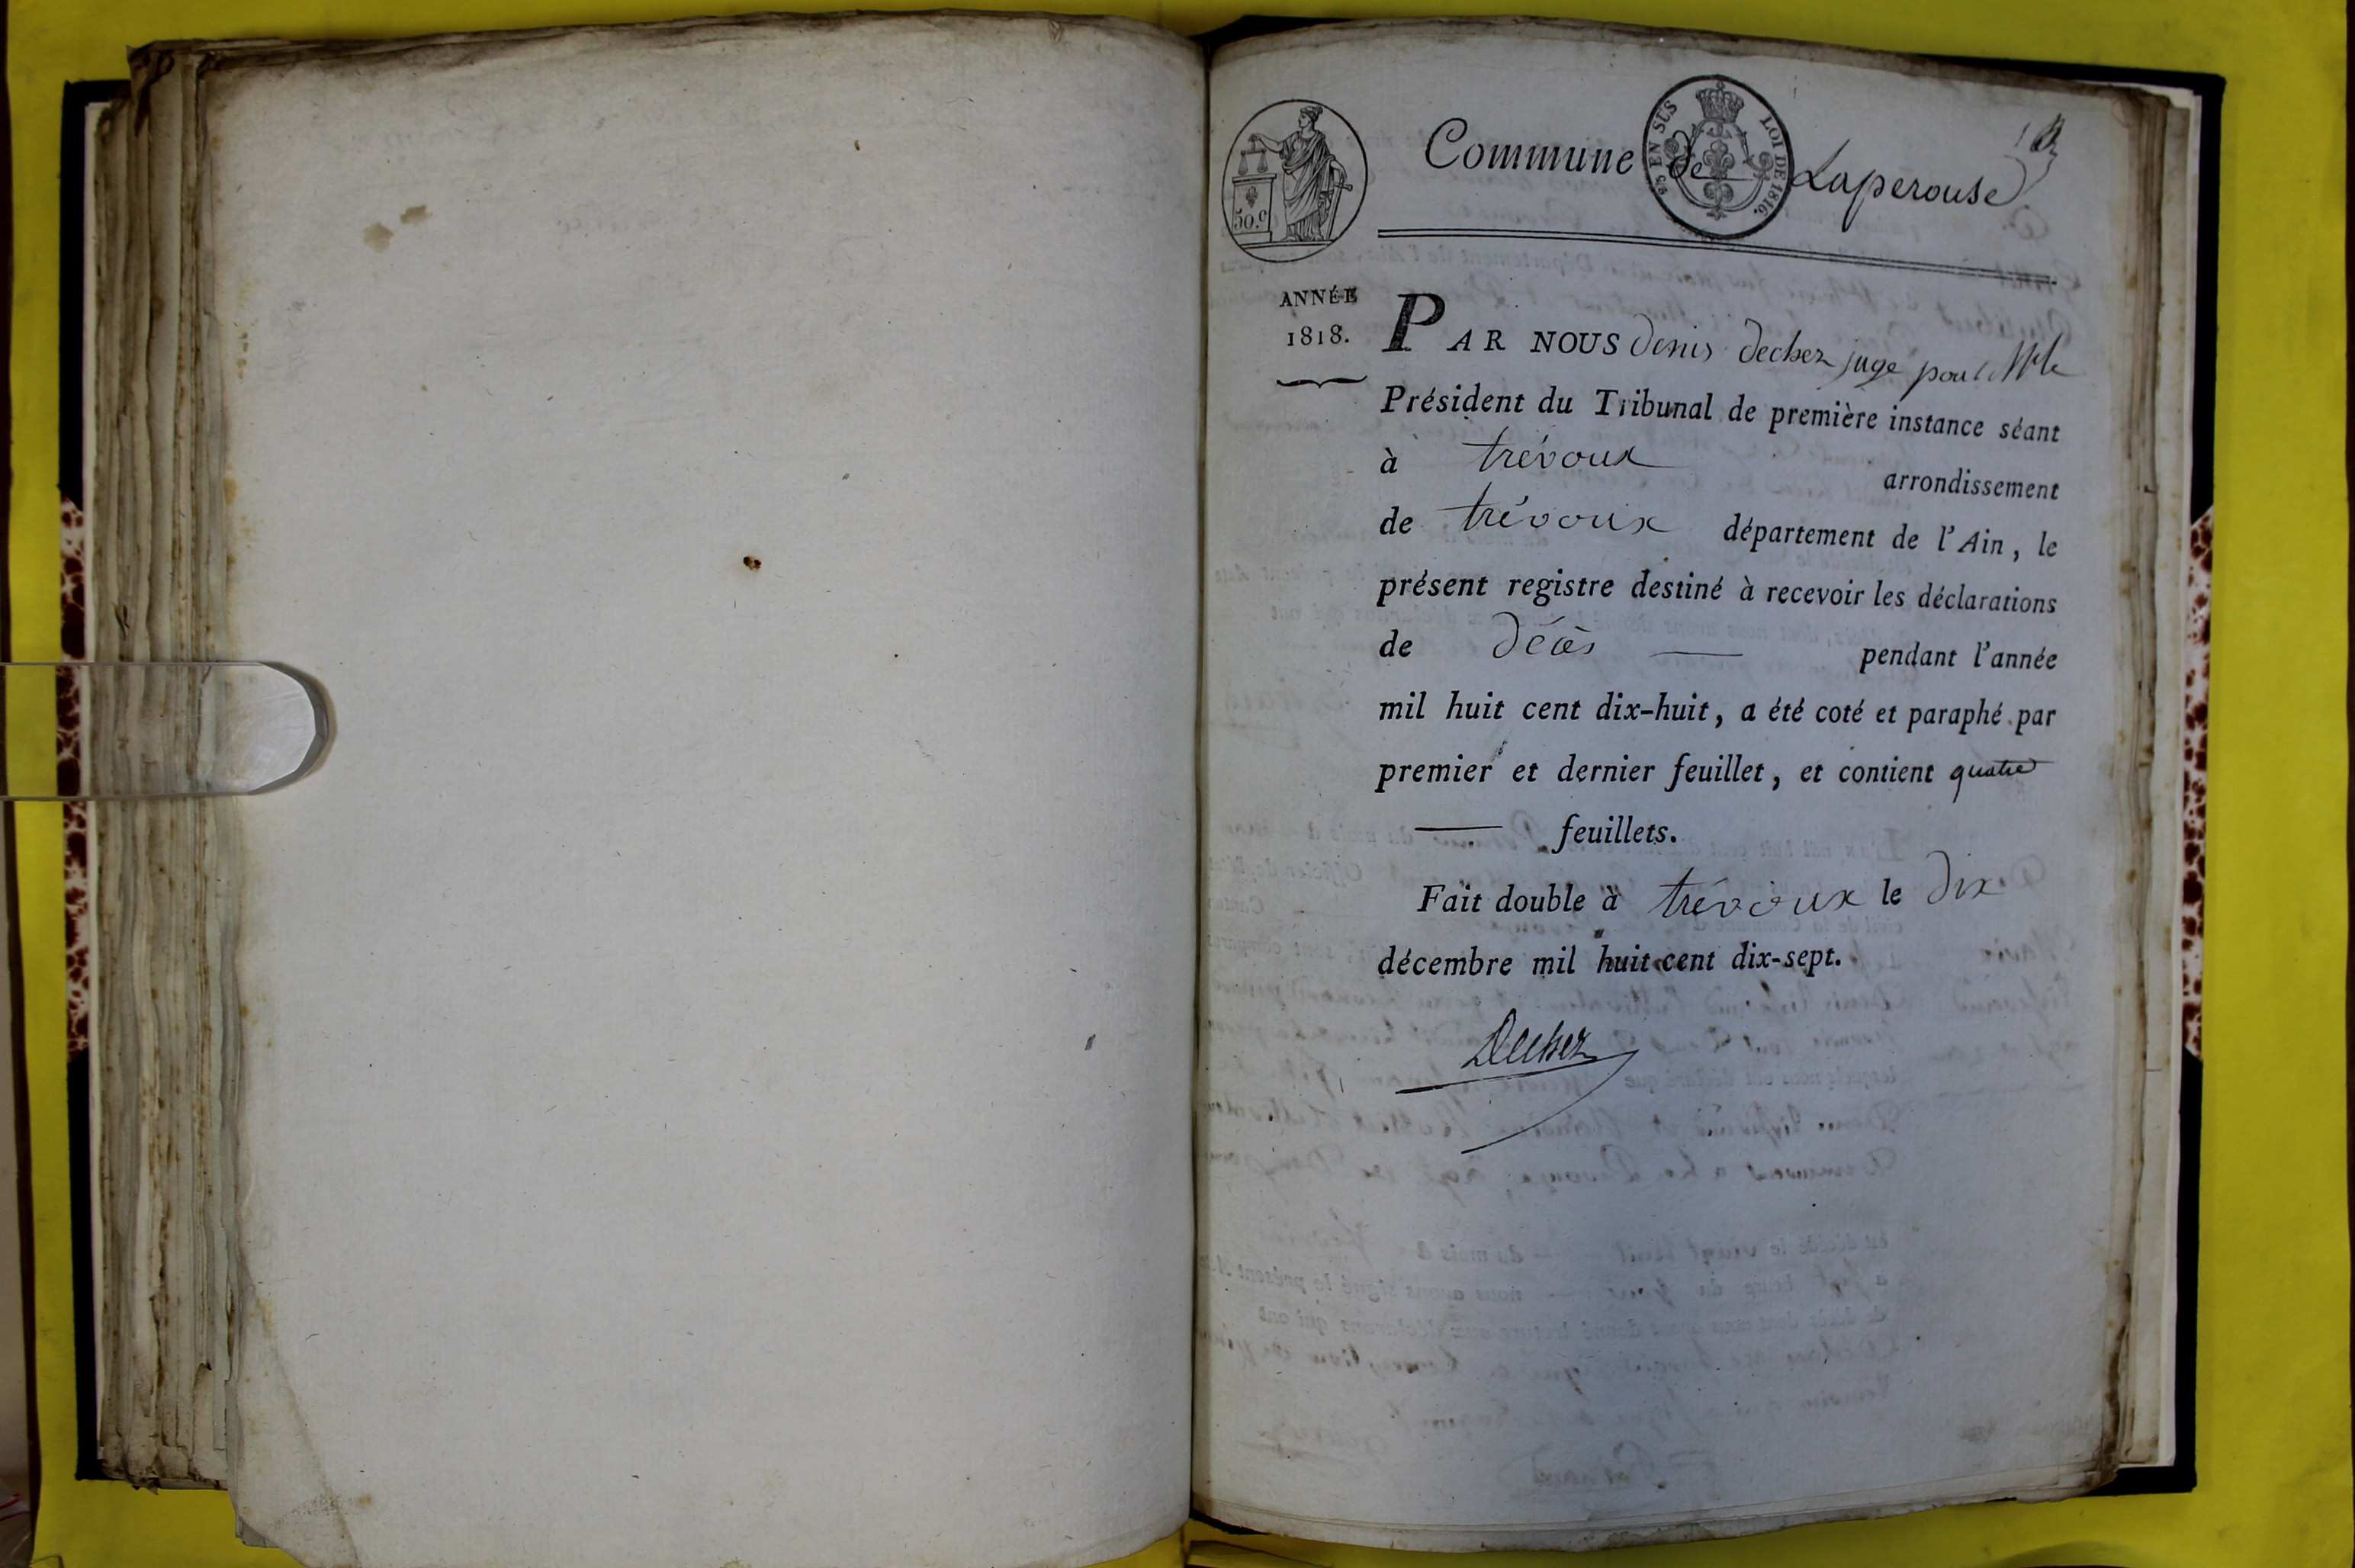 Commune de Laperouse
25 EN SUS
LOI DE 1816.
50.c
ANNÉE
1818.
PAR NOUS denis dechez juge pour Mr le
Président du Tribunal de première instance séant
à trévoux arrondissement
de trévoux département de l'Ain, le
présent registre destiné à recevoir les déclarations
de décès — pendant l'année
mil huit cent dix-huit, a été coté et paraphé par
premier et dernier feuillet, et contient quatre
— feuillets.
Fait double à trévoux le dix
décembre mil huit cent dix-sept.
Dechez